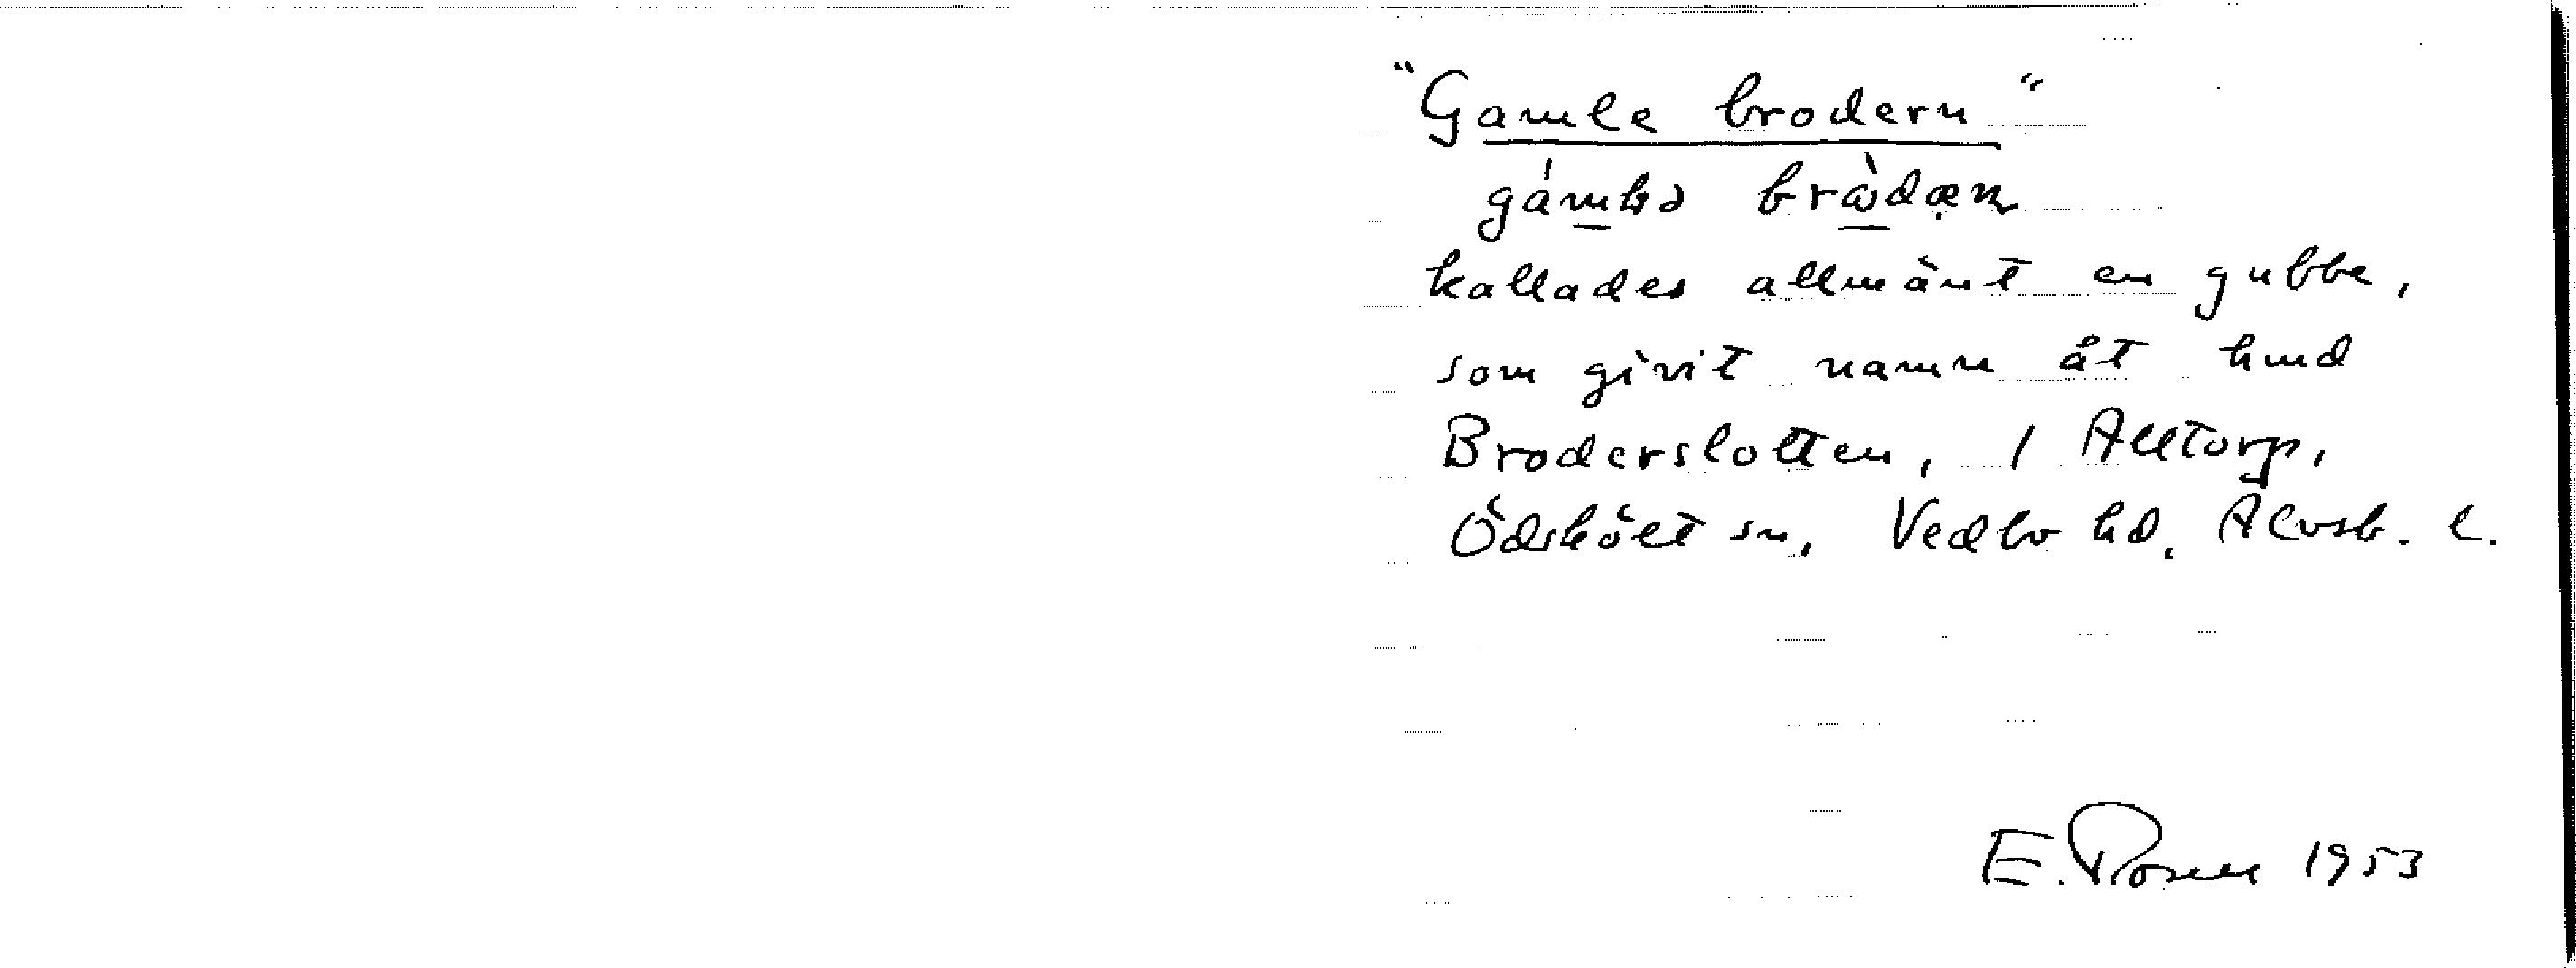 "Gamle brodern"
kallades allmänt en gubbe,
som givit namn åt hmd
Broderslotten, 1 Alltorp,
Ödskölt sn, Vedbo hd. Älvsb. l.
E. Rosell 1953